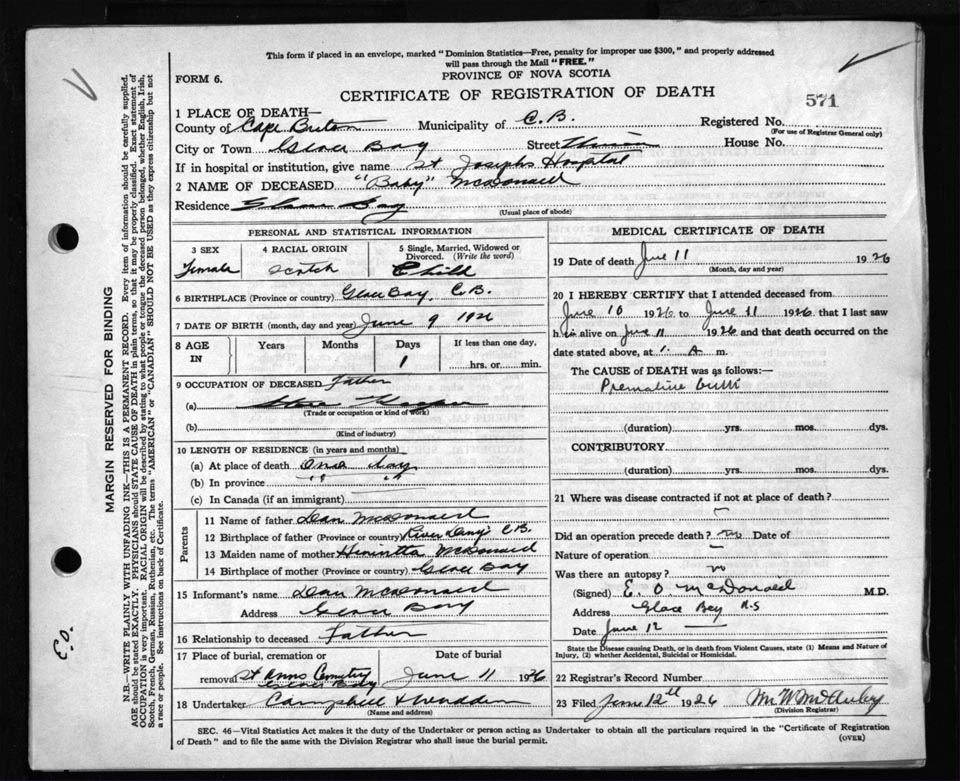 This form if placed in an envelope, marked "Dominion Statistics—Free, penalty for improper use $300," and properly addressed
will pass through the Mail "FREE."
FORM 6.
PROVINCE OF NOVA SCOTIA
CERTIFICATE OF REGISTRATION OF DEATH
571
1 PLACE OF DEATH—
County of Cape Breton Municipality of C.B. Registered No.
(For use of Registrar General only)
City or Town Glace Bay Street House No.
If in hospital or institution, give name St Josephs Hospital
2 NAME OF DECEASED "Baby" McDonald
Residence Glace Bay
(Usual place of abode)
PERSONAL AND STATISTICAL INFORMATION
3 SEX 4 RACIAL ORIGIN 5 Single, Married, Widowed or
Divorced. (Write the word)
Female Scotch Child
6 BIRTHPLACE (Province or country) Glace Bay, C.B.
7 DATE OF BIRTH (month, day and year) June 9 1926
8 AGE IN Years Months Days If less than one day,
1 hrs. or min.
9 OCCUPATION OF DECEASED Father
(a)
(Trade or occupation or kind of work)
(b)
(Kind of industry)
10 LENGTH OF RESIDENCE (in years and months)
(a) At place of death One day
(b) In province " "
(c) In Canada (if an immigrant)
Parents
11 Name of father Dan McDonald
12 Birthplace of father (Province or country) River Denys C.B.
13 Maiden name of mother Henrietta McDonald
14 Birthplace of mother (Province or country) Glace Bay
15 Informant's name Dan McDonald
Address Glace Bay
16 Relationship to deceased Father
17 Place of burial, cremation or Date of burial
removal St Anns Cemetry June 11 1926
Glace Bay
18 Undertaker Campbell &
(Name and address)
MEDICAL CERTIFICATE OF DEATH
19 Date of death June 11 1926
(Month, day and year)
20 I HEREBY CERTIFY that I attended deceased from
June 10 1926 to June 11 1926 that I last saw
h alive on June 11 1926 and that death occurred on
date stated above, at 1 A m.
The CAUSE of DEATH was as follows:—
Premature birth
(duration) yrs. mos. dys.
CONTRIBUTORY
(duration) yrs. mos. dys.
21 Where was disease contracted if not at place of death?
Did an operation precede death? no Date of
Nature of operation
Was there an autopsy? no
(Signed) E. O McDonald M.D.
Address Glace Bey N.S
Date June 12
State the Disease causing Death, or in death from Violent Causes, state (1) Means and Nature of
Injury, (2) whether Accidental, Suicidal or Homicidal.
22 Registrar's Record Number
23 Filed June 12th 1926
(Division Registrar)
SEC. 46—Vital Statistics Act makes it the duty of the Undertaker or person acting as Undertaker to obtain all the particulars required in the "Certificate of Registration
of Death" and to file the same with the Division Registrar who shall issue the burial permit.
(OVER)
MARGIN RESERVED FOR BINDING
N.B.—WRITE PLAINLY WITH UNFADING INK—THIS IS A PERMANENT RECORD. Every item of information should be carefully supplied.
AGE should be stated EXACTLY. PHYSICIANS should STATE CAUSE OF DEATH in plain terms, so that it may be properly classified. Exact statement of
OCCUPATION is very important. RACIAL ORIGIN will be described by stating to what people or tongue the deceased person belonged, whether English, Irish,
Scotch, French, German, Russian, Ruthenian, etc. The terms "AMERICAN" or "CANADIAN" SHOULD NOT BE USED as they express citizenship but not
a race or people. See instructions on back of Certificate.